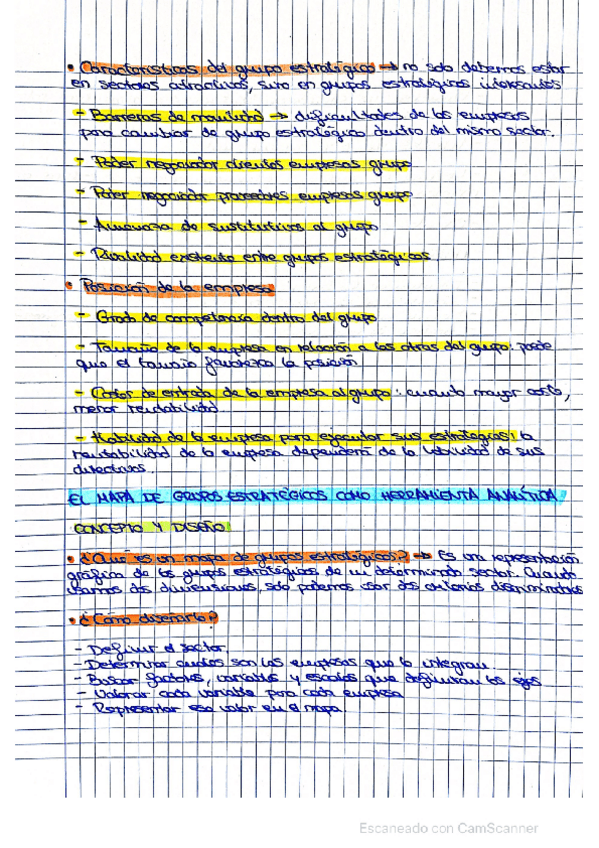 • Características del grupo estratégico → no solo debemos estar
en sectores atractivos, sino en grupos estratégicos interesantes
- Barreras de movilidad → dificultades de las empresas
para cambiar de grupo estratégico dentro del mismo sector.
- Poder negociador clientes empresas grupo
- Poder negociador proveedores empresas grupo
- Amenaza de sustitutivos al grupo
- Rivalidad existente entre grupos estratégicos
• Posición de la empresa
- Grado de competencia dentro del grupo
- Tamaño de la empresa en relación a las otras del grupo: puede
que el tamaño favorezca la posición
- Costes de entrada de la empresa al grupo: cuanto mayor coste,
menor rentabilidad
- Habilidad de la empresa para ejecutar sus estrategias: la
rentabilidad de la empresa dependerá de la habilidad de sus
directivos.
EL MAPA DE GRUPOS ESTRATÉGICOS COMO HERRAMIENTA ANALÍTICA
CONCEPTO Y DISEÑO
• ¿Qué es un mapa de grupos estratégicos? → Es una representación
gráfica de los grupos estratégicos de un determinado sector. Cuando
usamos dos dimensiones, solo podemos usar dos criterios discriminatorios
• ¿Cómo diseñarlo?
- Definir el sector.
- Determinar cuáles son las empresas que lo integran.
- Buscar factores, variables y escalas que definirán los ejes
- Valorar cada variable para cada empresa
- Representar ese valor en el mapa.
Escaneado con CamScanner